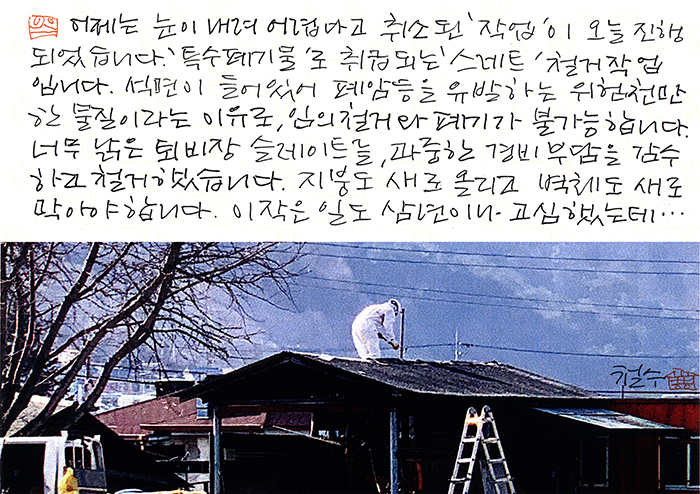 어제는 눈이 내려 어렵다고 취소된 '작업'이 오늘 진행
되었습니다. '특수폐기물'로 취급되는 '스레트' 철거작업
입니다. 석면이 들어있어 폐암등을 유발하는 위험천만
한 물질이라는 이유로, 임의철거와 폐기가 불가능합니다.
너무 낡은 퇴비장 슬레이트를, 과중한 경비부담을 감수
하고 철거했습니다. 지붕도 새로 올리고 벽체도 새로
막아야 합니다. 이작은 일도 삼년이나 고심했는데…
철수